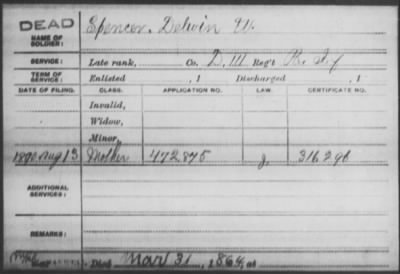 DEAD
NAME OF SOLDIER: Spencer, Delvin W.
SERVICE: Late rank, Co. D, 111 Reg't Pa. Inf
TERM OF SERVICE: Enlisted , 1 Discharged , 1
DATE OF FILING. CLASS. APPLICATION NO. LAW. CERTIFICATE NO.
Invalid,
Widow,
Minor,
1890 Aug 13 Mother 472.875 J. 316296
ADDITIONAL SERVICES:
REMARKS:
Died Mar 31, 1864, at